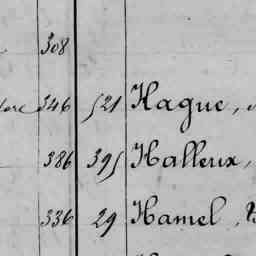 308
346 521 Hague,
386 395 Halleux,
336 29 Hamel,